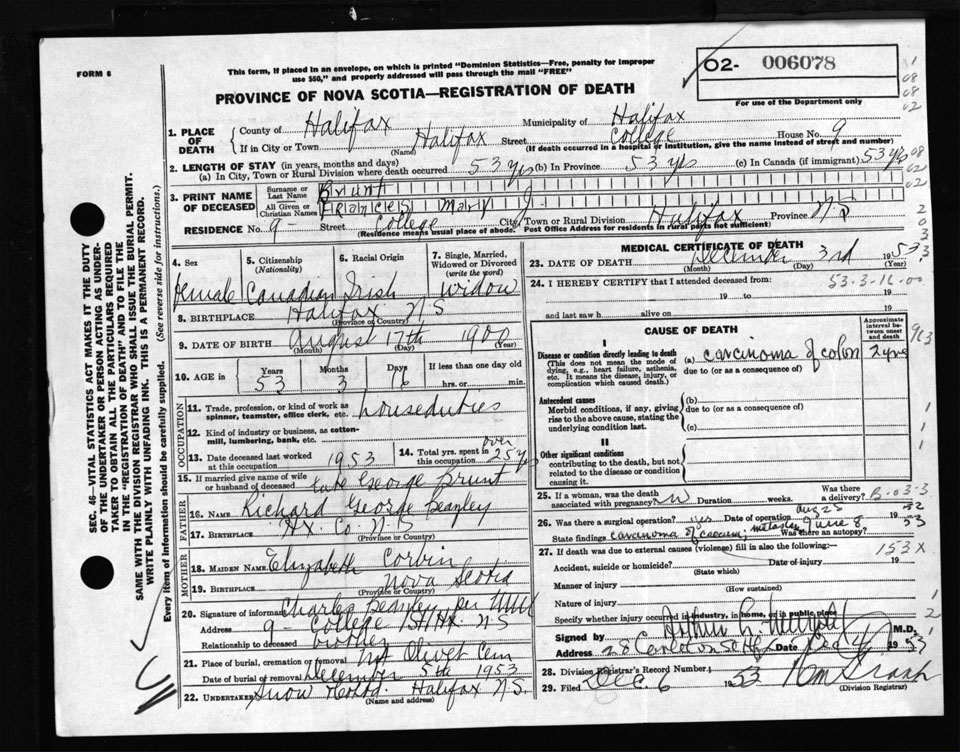 FORM 6
This form, if placed in an envelope, on which is printed "Dominion Statistics—Free, penalty for improper use $50," and properly addressed will pass through the mail "FREE"
02- 006078
For use of the Department only
PROVINCE OF NOVA SCOTIA—REGISTRATION OF DEATH
1. PLACE OF DEATH County of Halifax Municipality of Halifax
If in City or Town Halifax (Name) Street College House No. 9
(If death occurred in a hospital or institution, give the name instead of street and number)
2. LENGTH OF STAY (in years, months and days)
(a) In City, Town or Rural Division where death occurred 53 yrs (b) In Province 53 yrs (c) In Canada (if immigrant) 53 yrs
3. PRINT NAME OF DECEASED Surname or Last Name Brunt
All Given or Christian Names Frances Mary J
RESIDENCE No. 9- Street College City, Town or Rural Division Halifax Province N S
(Residence means usual place of abode. Post Office Address for residents in rural parts not sufficient)
4. Sex Female
5. Citizenship (Nationality) Canadian
6. Racial Origin Irish
7. Single, Married, Widowed or Divorced (write the word) Widow
8. BIRTHPLACE Halifax N.S (Province or Country)
9. DATE OF BIRTH August 17th 1900
(Month) (Day) (Year)
10. AGE in Years 53 Months 3 Days 16 If less than one day old hrs. or min.
OCCUPATION
11. Trade, profession, or kind of work as spinner, teamster, office clerk, etc. houseduties
12. Kind of industry or business, as cotton-mill, lumbering, bank, etc.
13. Date deceased last worked at this occupation 1953
14. Total yrs. spent in this occupation over 25 yrs
15. If married give name of wife or husband of deceased late George Brunt
FATHER
16. Name Richard George Beanley
17. BIRTHPLACE Hx Co. N-S (Province or Country)
MOTHER
18. MAIDEN NAME Elizabeth Corbin
19. BIRTHPLACE Nova Scotia (Province or Country)
20. Signature of informant Charles Beanley per
Address 9- College St Hx. N-S
Relationship to deceased brother
21. Place of burial, cremation or removal Mt Olivet Cem
Date of burial or removal December 5th 1953
22. Undertaker Snow & Co Ltd. Halifax N.S.
(Name and address)
MEDICAL CERTIFICATE OF DEATH
23. DATE OF DEATH December 3rd 1953
(Month) (Day) (Year)
24. I HEREBY CERTIFY that I attended deceased from: 53-3-16-00
19 to 19
and last saw h alive on 19
CAUSE OF DEATH
Approximate interval between onset and death
I
Disease or condition directly leading to death (a) carcinoma of colon 2 yrs
(This does not mean the mode of dying, e.g., heart failure, asthenia, etc. It means the disease, injury, or complication which caused death.)
due to (or as a consequence of)
Antecedent causes
Morbid conditions, if any, giving rise to the above cause, stating the underlying condition last.
(b)
due to (or as a consequence of)
(c)
II
Other significant conditions
contributing to the death, but not related to the disease or condition causing it.
25. If a woman, was the death associated with pregnancy? Duration weeks. Was there a delivery? B-03-3
26. Was there a surgical operation? yes Date of operation Aug 25 1952
State findings carcinoma of caecum; June 8 53 Was there an autopsy?
27. If death was due to external causes (violence) fill in also the following:— 153 X
Accident, suicide or homicide? (State which) Date of injury 19
Manner of injury (How sustained)
Nature of injury
Specify whether injury occurred in industry, in home, or in public place
Signed by M.D.
Address 28 Carleton St Hfx Date Dec 4 1953
28. Division Registrar's Record Number
29. Filed Dec. 6 1953
(Division Registrar)
SEC. 46—VITAL STATISTICS ACT MAKES IT THE DUTY OF THE UNDERTAKER OR PERSON ACTING AS UNDERTAKER TO OBTAIN ALL THE PARTICULARS REQUIRED IN THE "REGISTRATION OF DEATH" AND TO FILE THE SAME WITH THE DIVISION REGISTRAR WHO SHALL ISSUE THE BURIAL PERMIT.
WRITE PLAINLY WITH UNFADING INK. THIS IS A PERMANENT RECORD.
Every item of information should be carefully supplied. (See reverse side for instructions.)